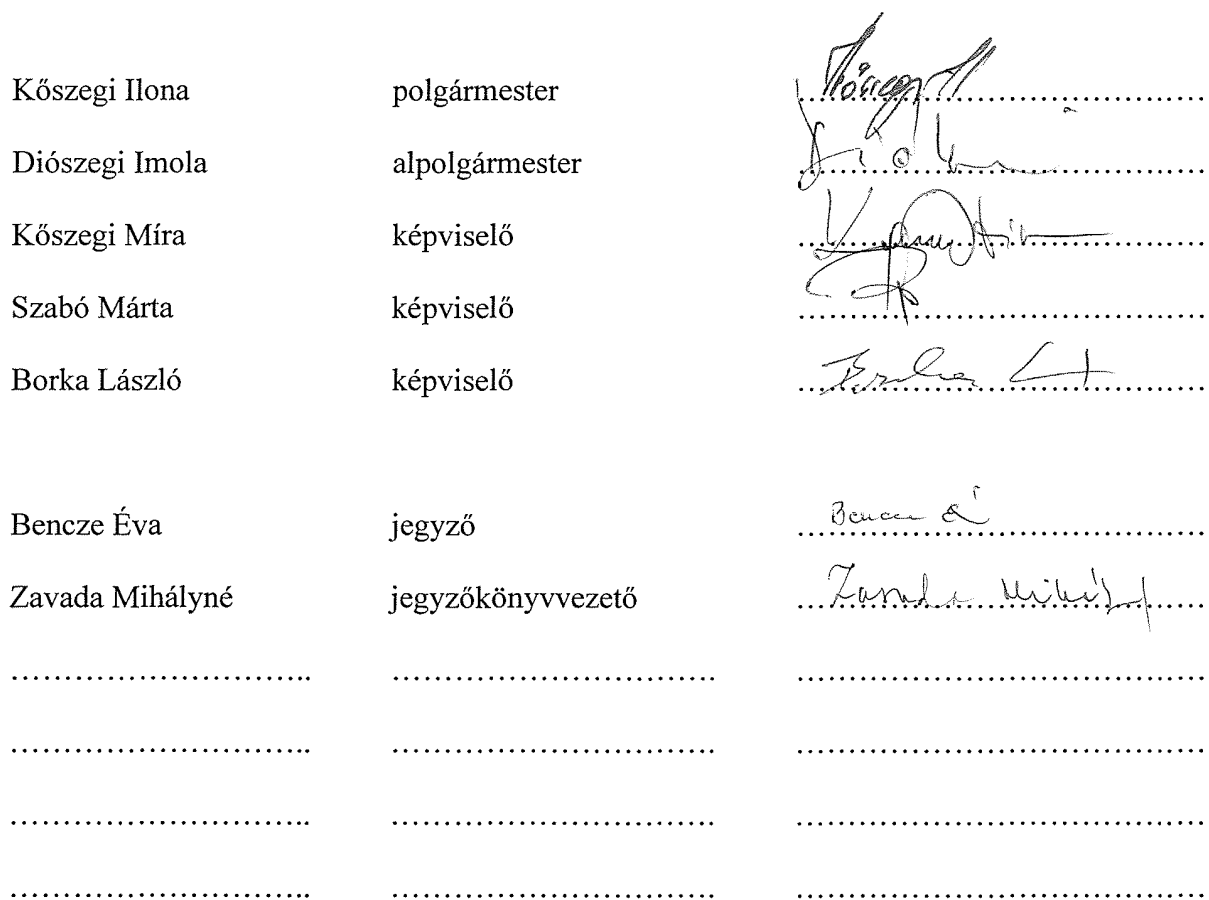 Kőszegi Ilona polgármester
Diószegi Imola alpolgármester
Kőszegi Míra képviselő
Szabó Márta képviselő
Borka László képviselő
Bencze Éva jegyző Bencze É
Zavada Mihályné jegyzőkönyvvezető Zavada Mihály